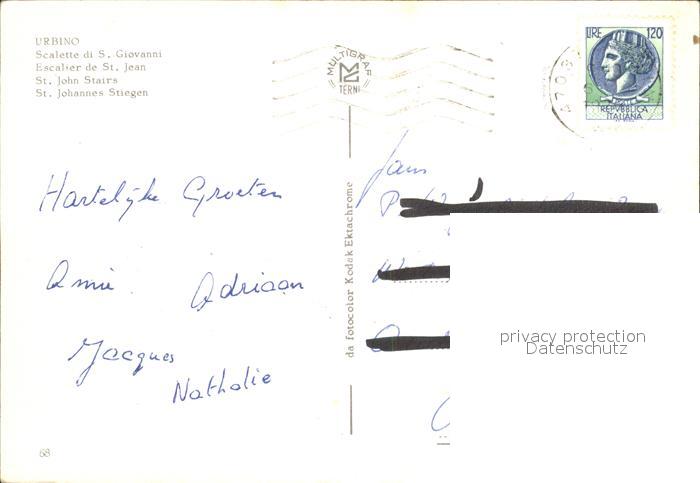 URBINO
Scalette di S. Giovanni
Escalier de St. Jean
St. John Stairs
St. Johannes Stiegen
MULTIGRAF
TERNI
LIRE 120
REPVBBLICA
ITALIANA
Hartelijke Groeten
Adriaan
Jacques
Nathalie
68
da fotocolor Kodak Ektachrome
privacy protection
Datenschutz